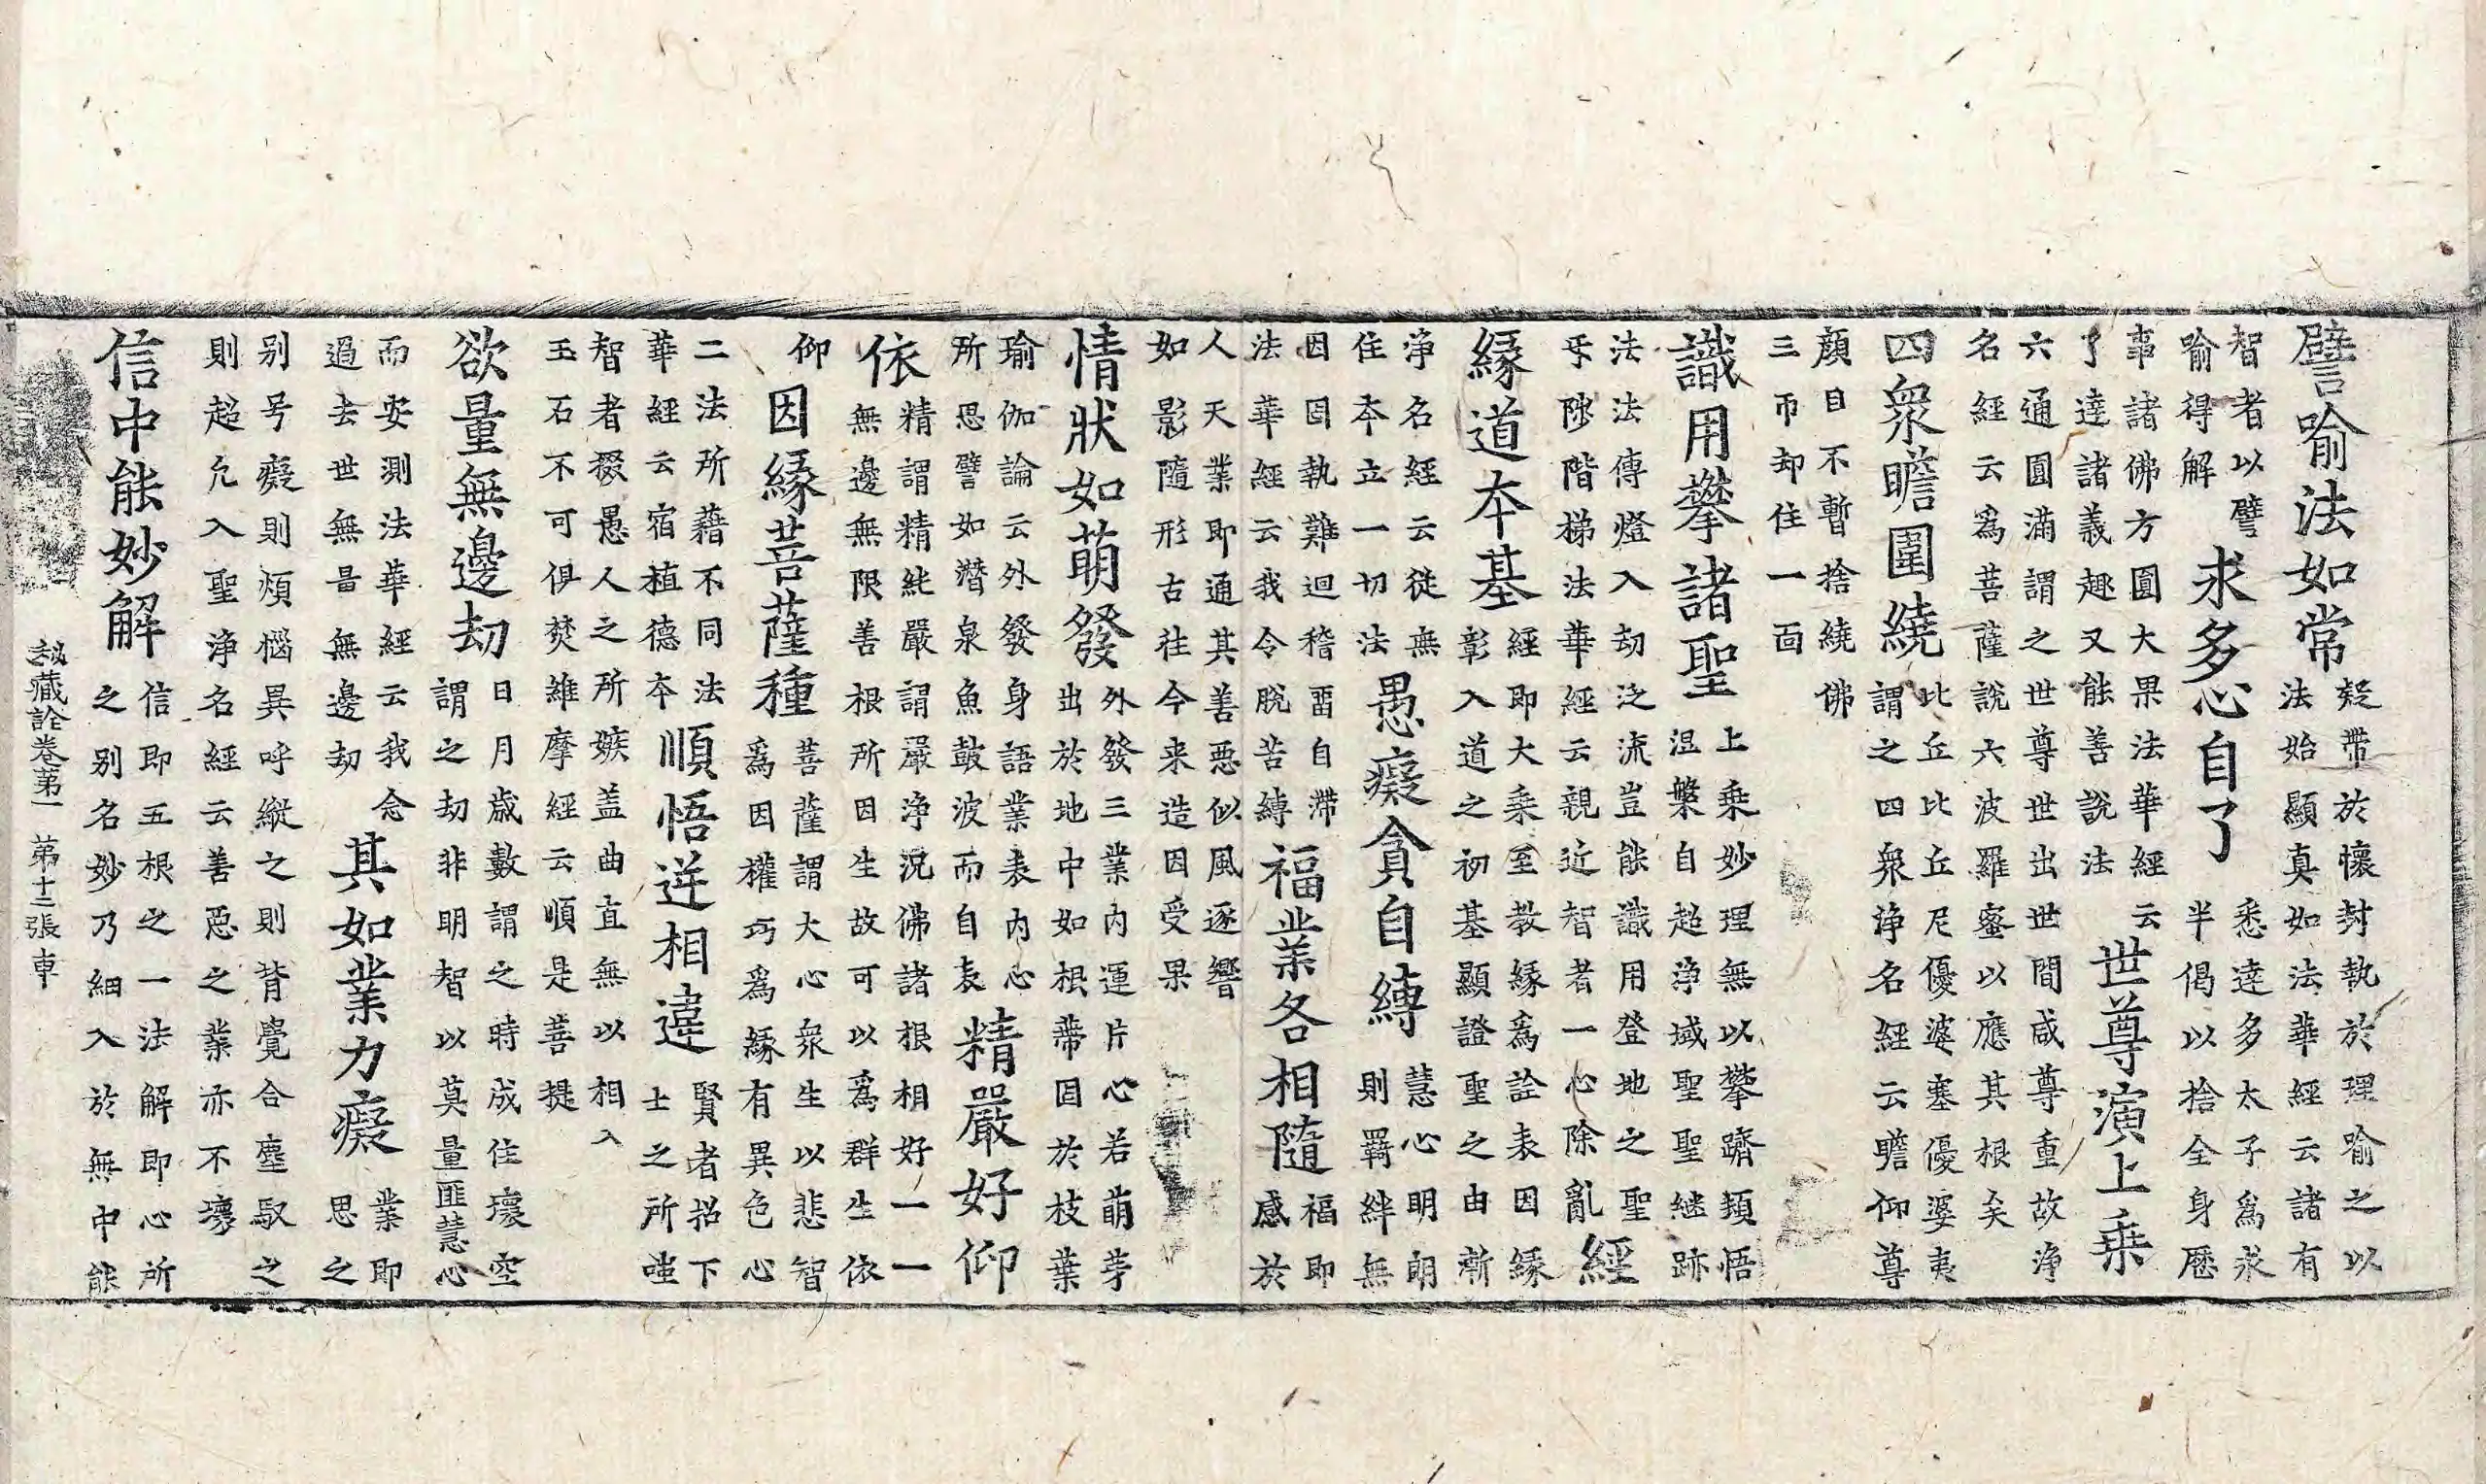 譬喻法如常
疑帶於懷封執於理喻之以
法始顯真如法華經云諸有
智者以譬
喻得解
求多心自了
悉達多太子爲求
半偈以捨全身歷
事諸佛方圓大果法華經云
了達諸義趣又能善說法
世尊演上乗
六通圓滿謂之世尊世出世間咸尊重故浄
名經云爲菩薩說六波羅蜜以應其根矣
四衆瞻圍繞
比丘比丘尼優婆塞優婆夷
謂之四衆浄名經云瞻仰尊
顏目不暫捨繞佛
三帀却住一面
識用攀諸聖
上乗妙理無以攀躋類悟
涅槃自超浄域聖聖継跡
法法傳燈入劫泛流豈能識用登地之聖
乎陟階梯法華經云親近智者一心除亂
經
緣道本基
經即大乗至教緣爲詮表因緣
彰入道之初基顯證聖之由漸
浄名經云從無
住本立一切法
愚癡貪自縛
慧心明朗
則羇絆無
因因執難迴稽畱自滯
法華經云我令脫苦縛
福業各相隨
福即
感於
人天業即通其善惡似風逐響
如影隨形古往今来造因受果
情狀如萌發
外發三業内運片心若萌芽
出於地中如根蔕因於枝葉
瑜伽論云外發身語業表内心
所思譬如潛泉魚鼓波而自表
精嚴好仰
依
精謂精純嚴謂嚴浄況佛諸根相好一一
無邊無限善根所因生故可以爲群生依
仰
因緣菩薩種
菩薩謂大心衆生以悲智
爲因權巧爲緣有異色心
二法所藉不同法
華經云宿植德本
順悟逆相違
賢者招下
士之所嗤
智者掇愚人之所嫉盖曲直無以相入
玉石不可俱焚維摩經云順是菩提
欲量無邊劫
日月歲數謂之時成住壞空
謂之劫非明智以莫量匪慧心
而安測法華經云我念
過去世無量無邊劫
其如業力癡
業即
思之
别号癡則煩惱異呼縱之則背覺合塵馭之
則超凡入聖浄名經云善惡之業亦不壞
信中能妙解
信即五根之一法解即心所
之别名妙乃細入於無中能
秘藏詮卷第一 第十三張 車